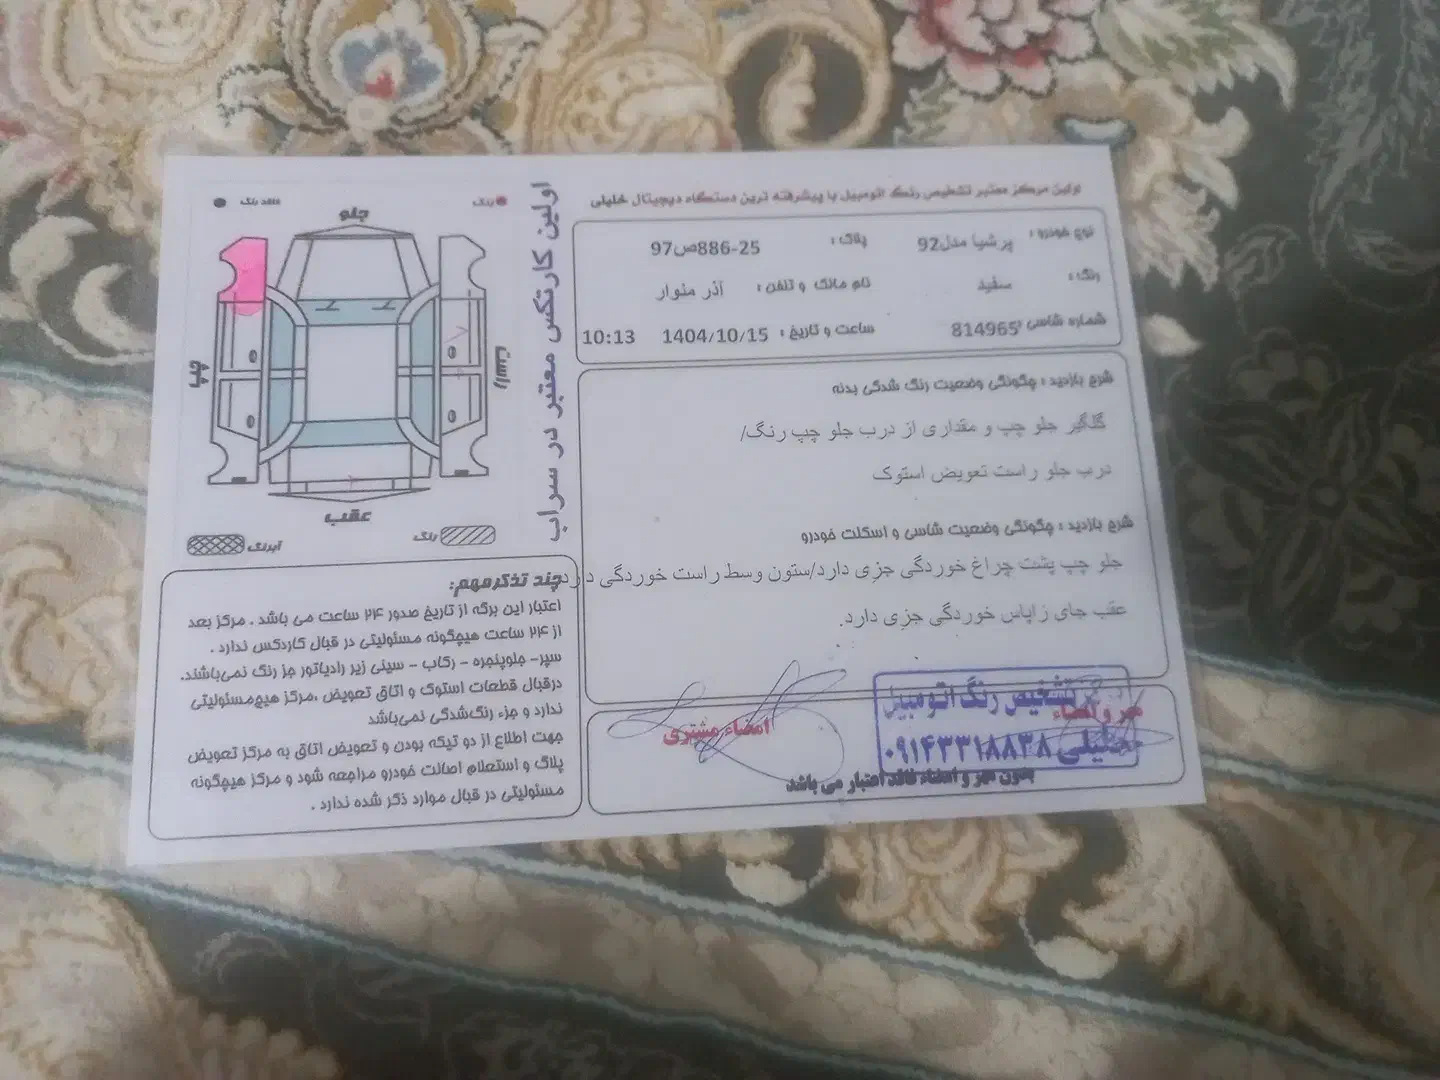 اولین مرکز معتبر تشخیص رنگ اتومبیل با پیشرفته ترین دستگاه دیجیتال خلیلی
نوع خودرو : پرشیا مدل92 پلاک : 97ص886-25
رنگ : سفید نام مالک و تلفن : آذر منوار
شماره شاسی : 814965 ساعت و تاریخ : 1404/10/15 10:13
شرح بازدید : چگونگی وضعیت رنگ شدگی بدنه
گلگیر جلو چپ و مقداری از درب جلو چپ رنگ/
درب جلو راست تعویض استوک
شرح بازدید : چگونگی وضعیت شاسی و اسکلت خودرو
جلو چپ پشت چراغ خوردگی جزی دارد/ستون وسط راست خوردگی دارد
عقب جای زاپاس خوردگی جزی دارد.
مهر و امضاء
امضاء مشتری
تشخیص رنگ اتومبیل
خلیلی ۰۹۱۴۳۳۱۸۸۳۸
بدون مهر و امضاء فاقد اعتبار می باشد
اولین کارتکس معتبر در سراب
رنگ
فاقد رنگ
جلو
چپ
راست
عقب
رنگ
آبرنگ
چند تذکر مهم:
اعتبار این برگه از تاریخ صدور ۲۴ ساعت می باشد . مرکز بعد
از ۲۴ ساعت هیچگونه مسئولیتی در قبال کاردکس ندارد .
سپر- جلوپنجره - رکاب - سینی زیر رادیاتور جز رنگ نمی‌باشند.
درقبال قطعات استوک و اتاق تعویض ،مرکز هیچ مسئولیتی
ندارد و جزء رنگ‌شدگی نمی‌باشد
جهت اطلاع از دو تیکه بودن و تعویض اتاق به مرکز تعویض
پلاک و استعلام اصالت خودرو مراجعه شود و مرکز هیچگونه
مسئولیتی در قبال موارد ذکر شده ندارد .